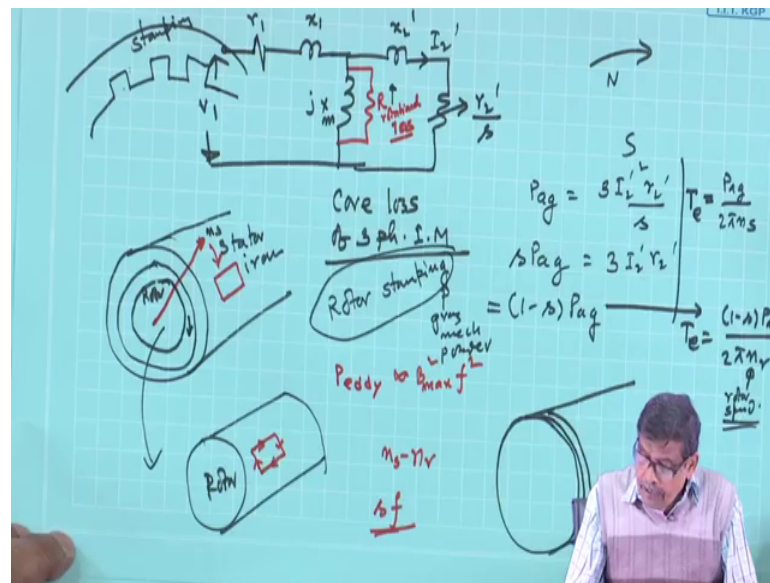 I.I.T. KGP
stamping
r₁
x₁
x₂'
I₂'
V₁
jxₘ
R
rotational
loss
r₂'/s
N
S
Pag = 3I₂'² r₂'/s
Te = Pag/2πnₛ
sPag = 3I₂'r₂'
= (1-s)Pag
gross
mech
power
Te = (1-s)P
2πnᵣ
rotor
speed.
Core loss
of 3 ph. I.M
Rotor stamping
nₛ
Stator
iron
Rotor
Peddy ∝ B²max f²
nₛ-nᵣ
sf
Rotor